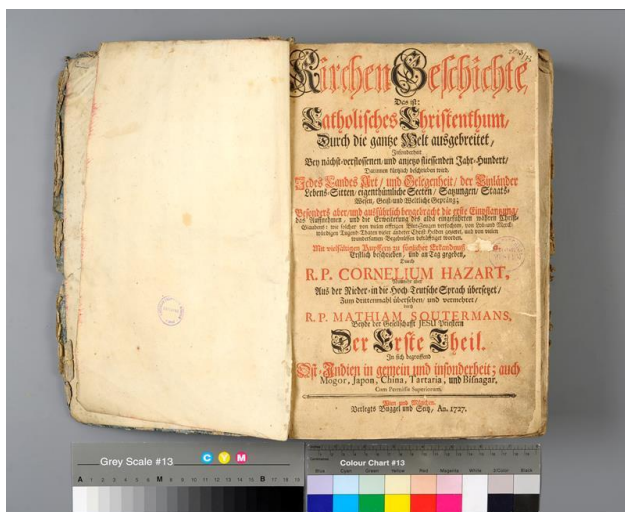 Kirchen-Geschichte,
Das ist:
Catholisches Christenthum,
Durch die gantze Welt ausgebreitet,
Insonderheit
Bey nächst-verflossenen, und anjetzo fliessenden Jahr-Hundert,
Darinnen kürtzlich beschrieben wird,
Jedes Landes Art, und Gelegenheit, der Innländer
Lebens-Sitten, eigenthümliche Secten, Satzungen, Staats-
Wesen, Geist- und Weltliche Gepräng;
Besonders aber, und ausführlich beygebracht die erste Einpflantzung,
das Aufnehmen, und die Erweiterung des alda eingeführten wahren Christ-
Glaubens: wie solcher von vielen
würdigen Tugend-Thaten vieler anderer Christ-Helden gezieret, und von vielen
wunderbaren Begebenheiten bekräfftiget worden.
Mit vielfältigen Kupffern zu
Erstlich beschrieben, und an Tag gegeben,
Durch
R. P. CORNELIUM HAZART,
Anjetzo aber
Aus der Nieder- in die Hoch-Teutsche Sprach übersetzet,
Zum drittenmahl übersehen, und vermehret,
durch
R. P. MATHIAM SOUTERMANS,
Beyde der Gesellschafft JESU Priestern
Der Erste Theil.
In sich begreiffend
Ost-Indien in gemein und insonderheit; auch
Mogor, Japon, China, Tartaria, und Bisnagar.
Cum Permissu Superiorum.
Wien und München,
Verlegts Buggel und Seitz, An. 1727.
Grey Scale #13
C Y M
A 1 2 3 4 5 6 M 8 9 10 11 12 13 14 15 B 17 18 19
Colour Chart #13
Blue Cyan Green Yellow Red Magenta White 3/Color Black